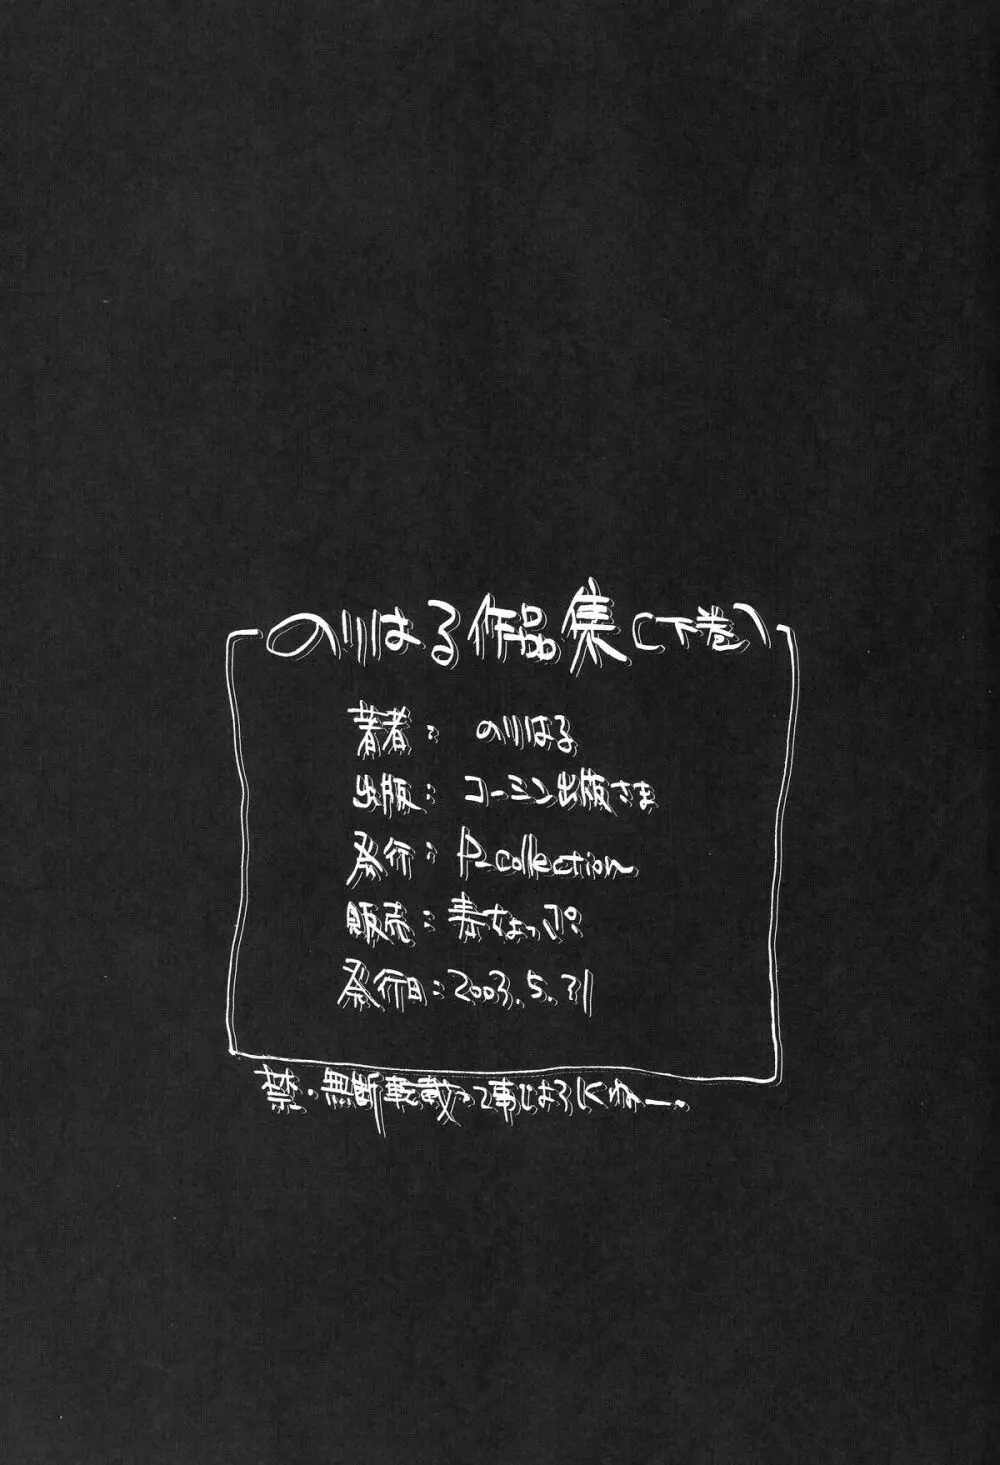 のりはる作品集(下巻)
著者: のりはる
出版: コーミン出版さま
発行: P-collection
販売: 毒ちょっぷ
発行日: 2003.5.31
禁・無断転載って事でよろしくねー。